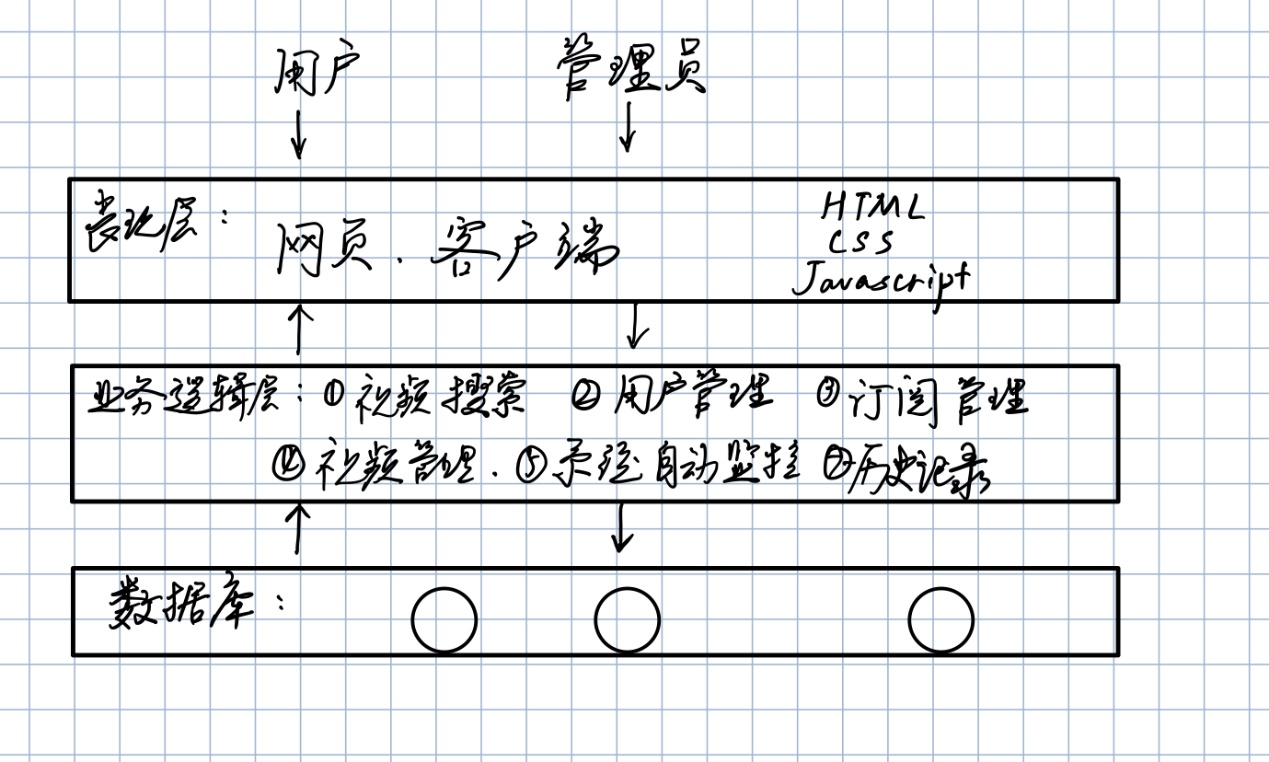 用户 管理员
表现层: 网页、客户端
HTML
CSS
Javascript
业务逻辑层: ①视频搜索 ②用户管理 ③订阅管理
④视频管理、⑤系统自动监控 ⑦历史记录
数据库: